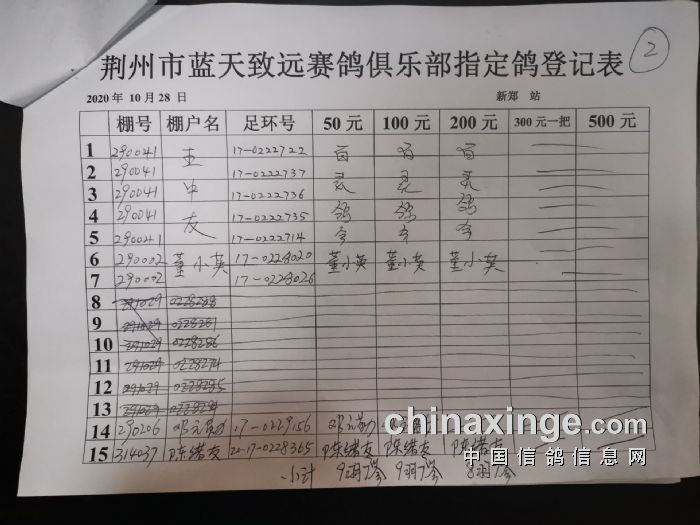 2
荆州市蓝天致远赛鸽俱乐部指定鸽登记表
2020 年 10 月 28 日 新郑 站
棚号 棚户名 足环号 50 元 100 元 200 元 300 元一把 500 元
1 290041 王 17-0222722 百 百 百
2 290041 17-0222737 灵 灵 灵
3 290041 中 17-0222736
4 290041 17-0222735 鸽 鸽 鸽
5 290041 友 17-0222714 舍 舍 舍
6 290002 董小英 17-0228020 董小英 董小英 董小英
7 290002 17-0228026
8 291029 0228288
9 291029 0228281
10 291029 0228286
11 291029 0228274
12 291029 0228285
13 291029
14 290206 邓 17-0229156 邓
15 314037 陈绪友 20-17-0228365 陈绪友 陈绪友 陈绪友
小计 9羽7券 9羽7券 8羽7券
chinaxinge.com
中国信鸽信息网